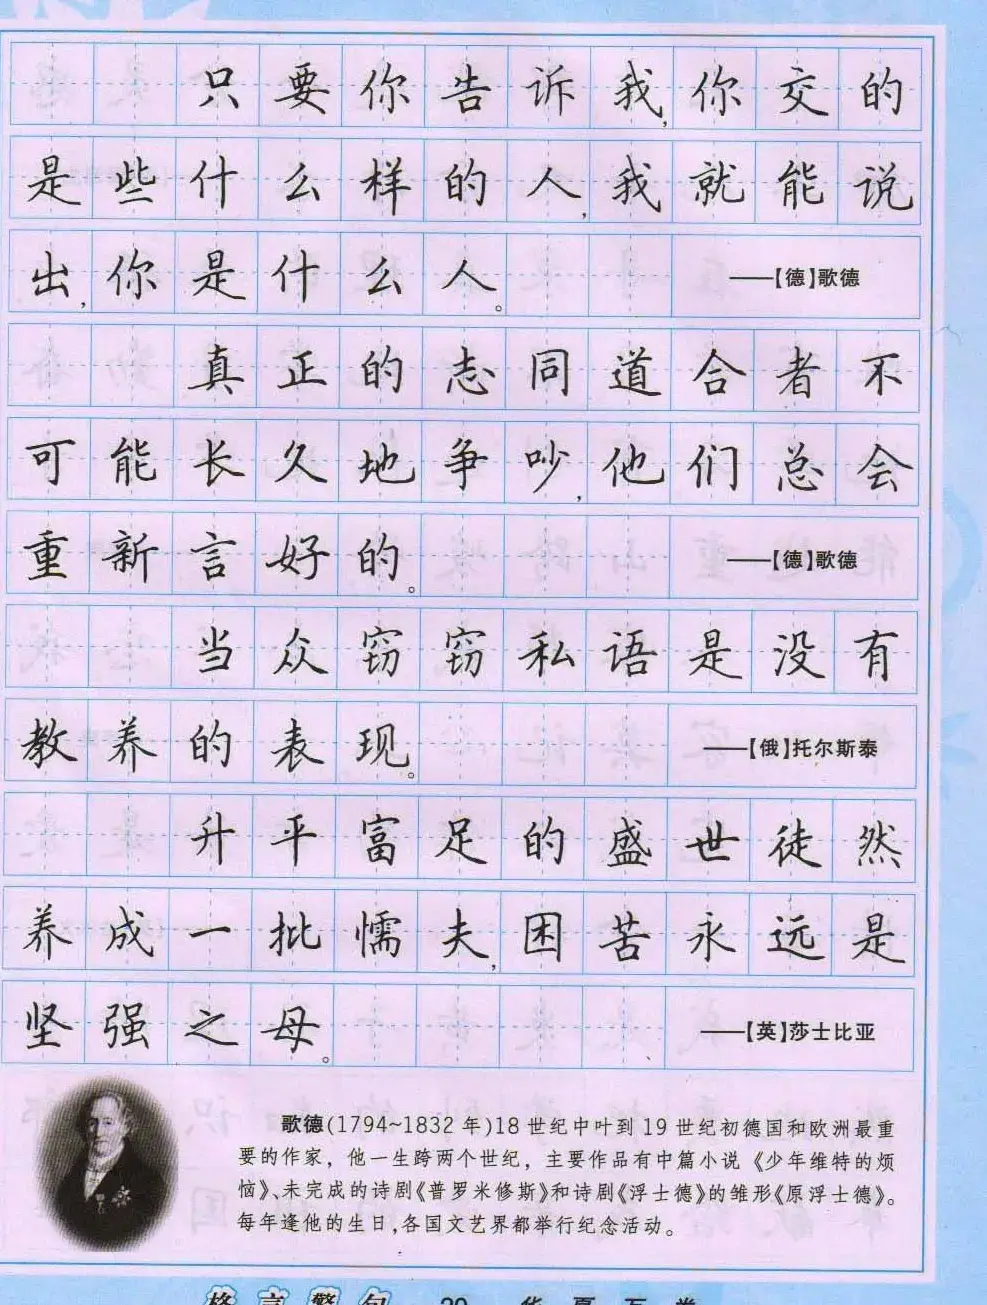 只要你告诉我,你交的
是些什么样的人,我就能说
出,你是什么人。 ——【德】歌德
真正的志同道合者不
可能长久地争吵,他们总会
重新言好的。 ——【德】歌德
当众窃窃私语是没有
教养的表现。 ——【俄】托尔斯泰
升平富足的盛世徒然
养成一批懦夫,困苦永远是
坚强之母。 ——【英】莎士比亚
歌德(1794~1832年)18世纪中叶到19世纪初德国和欧洲最重
要的作家，他一生跨两个世纪，主要作品有中篇小说《少年维特的烦
恼》、未完成的诗剧《普罗米修斯》和诗剧《浮士德》的雏形《原浮士德》。
每年逢他的生日,各国文艺界都举行纪念活动。